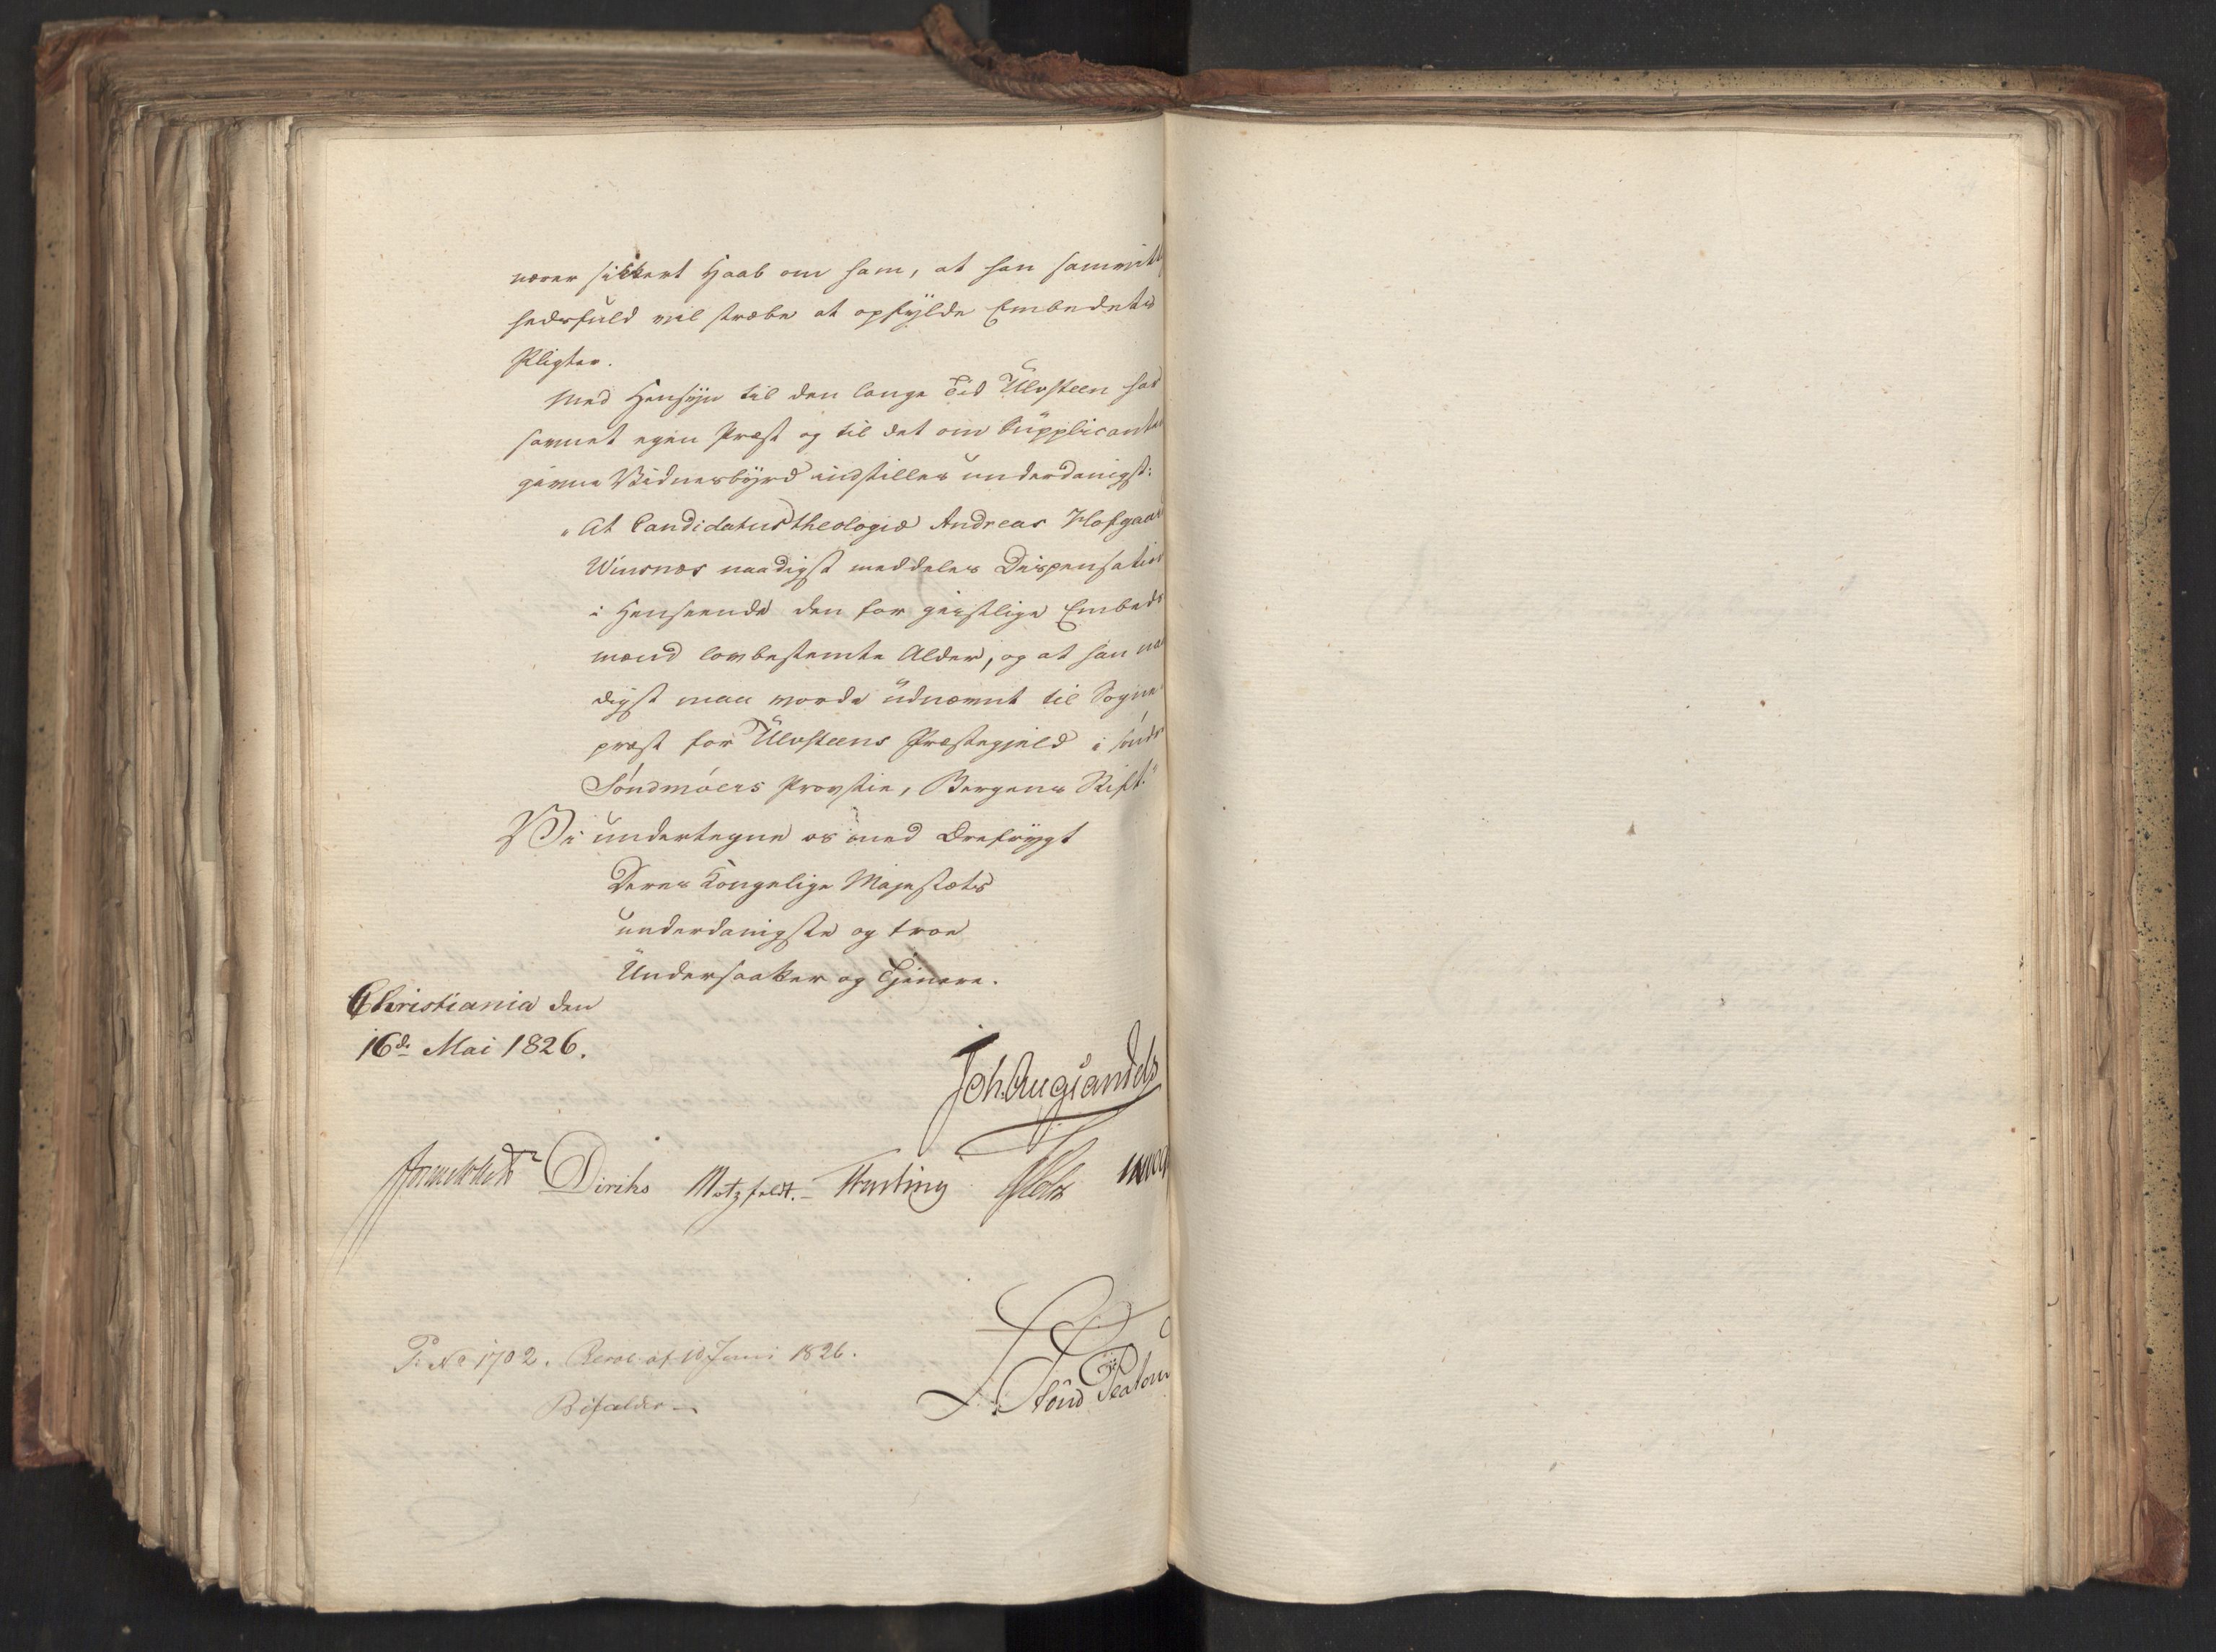 nærer sikkert Haab om ham, at han samvittig
hedsfuld vil stræbe at opfylde Embedets
Pligter.
Med Hensyn til den lange Tid Ulvsteen har
savnet egen Præst og til det om Supplicanten
givne Vidnesbyrd indstilles underdanigst:
"At Candidatus theologiæ Andreas Hofgaard
Winsnes naadigst meddeles Dispensation
i Henseende den for geistlige Embeds
mænd lovbestemte Alder, og at han naa
digst maa vorde udnævnt til Sogne-
præst for Ulvsteens Præstegjeld i søndre
Söndmöers Provstie, Bergens Stift."
Vi undertegne os med Ærefrygt
Deres Kongelige Majestæts
underdanigste og troe
Undersaatter og Tjenere.
Christiania den
16de Mai 1826.
Joh. Aug. Sandels
Diriks Motzfeldt. Fasting Holst
P. No 1702. Resol. af 10 Juni 1826.
Bifaldes